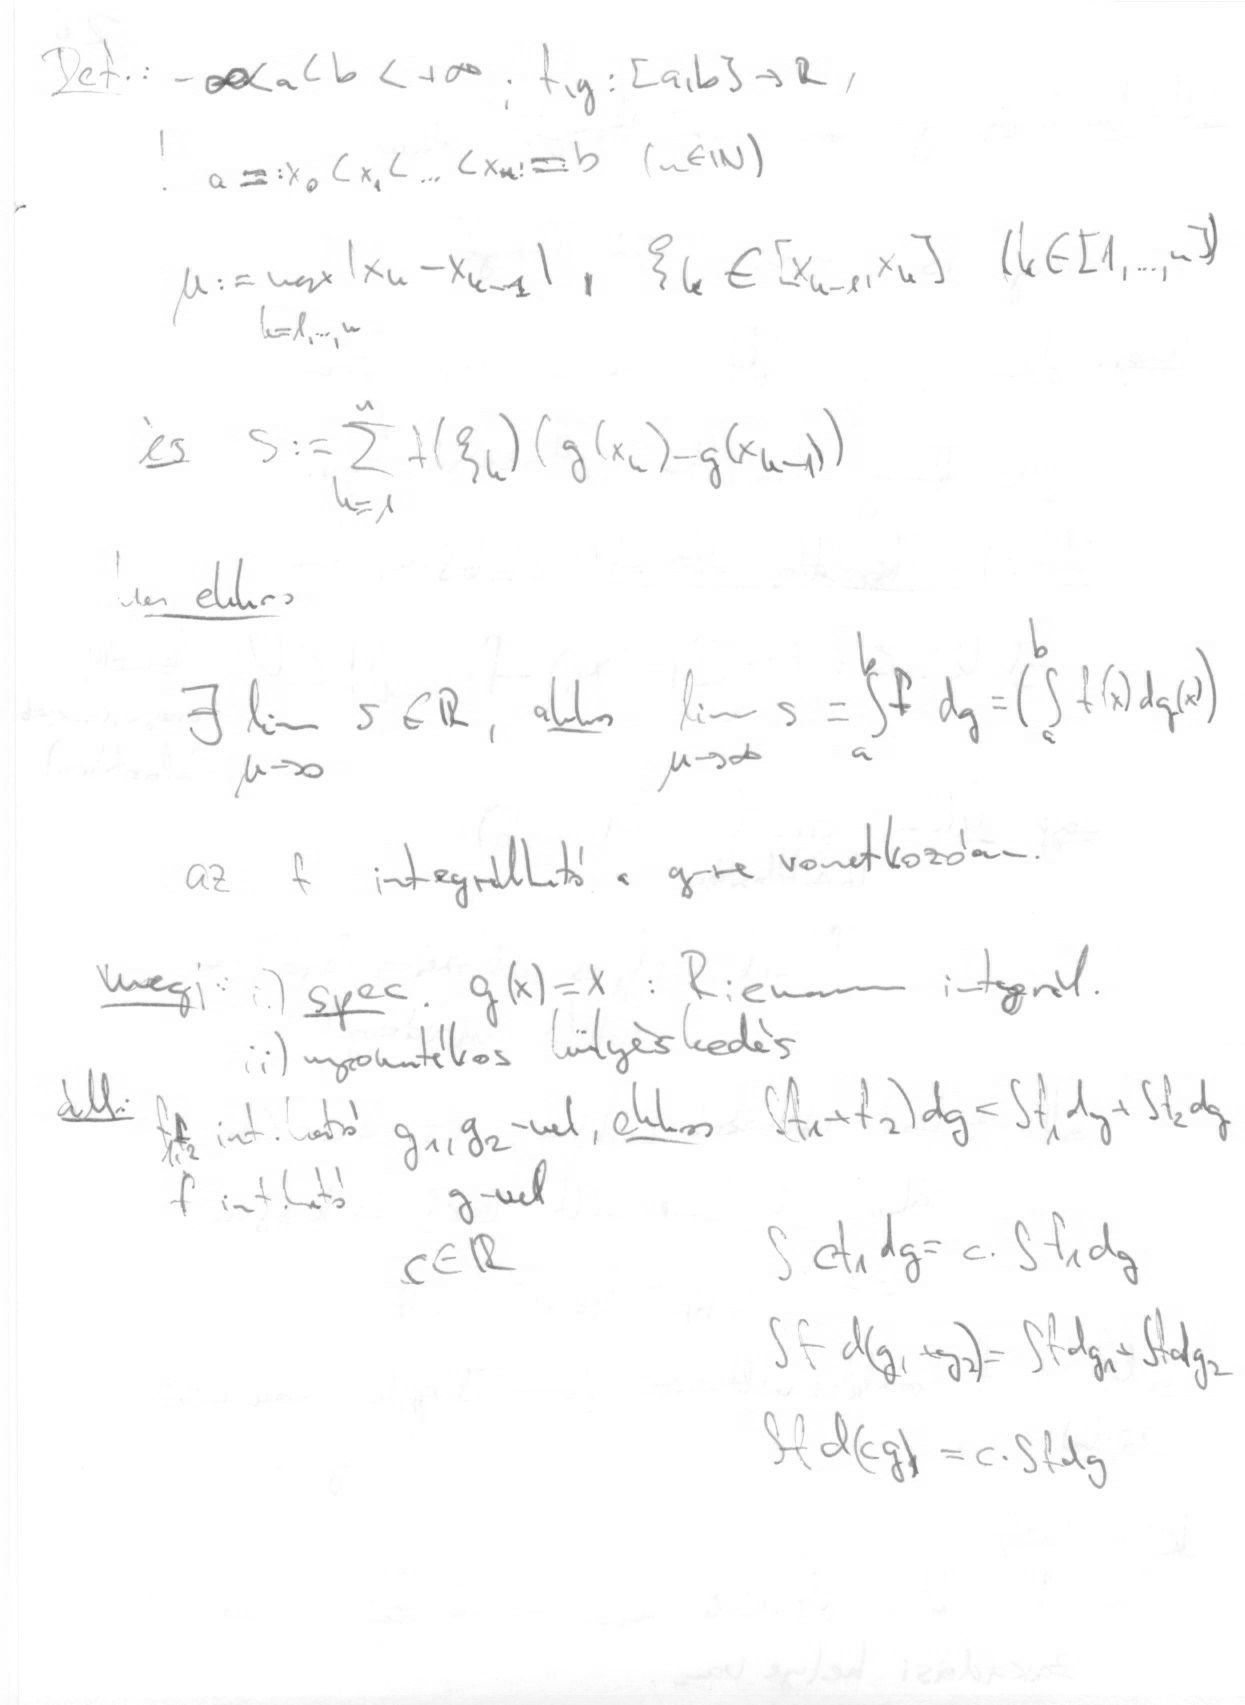 Def.: -∞<a<b<+∞; f,g: [a,b] → ℝ,
! a=:x₀<x₁<...<xₙ:=b (n∈ℕ)
μ:= max |xₖ-xₖ₋₁|, ξₖ ∈ [xₖ₋₁,xₖ] (k∈[1,...,n])
k=1,...,n
és S:= ∑ₖ₌₁ⁿ f(ξₖ)(g(xₖ)-g(xₖ₋₁))
Ha ekkor
∃ lim_{μ→∞} s ∈ ℝ, akkor lim_{μ→∞} s = ∫ₐᵇ f dg = (∫ₐᵇ f(x)dg(x))
az f integrálható a g-re vonatkozóan.
megj: i.) spec. g(x)=x : Riemann integrál.
ii.) nyomatékos hülyéskedés
áll: f₁,₂ int.ható g₁,g₂-vel, ekkor ∫(f₁+f₂)dg=∫f₁dg+∫f₂dg
f int.ható g-vel
c∈ℝ ∫cf₁dg=c·∫f₁dg
∫f d(g₁+g₂)=∫fdg₁+∫fdg₂
∫f d(cg) = c·∫fdg